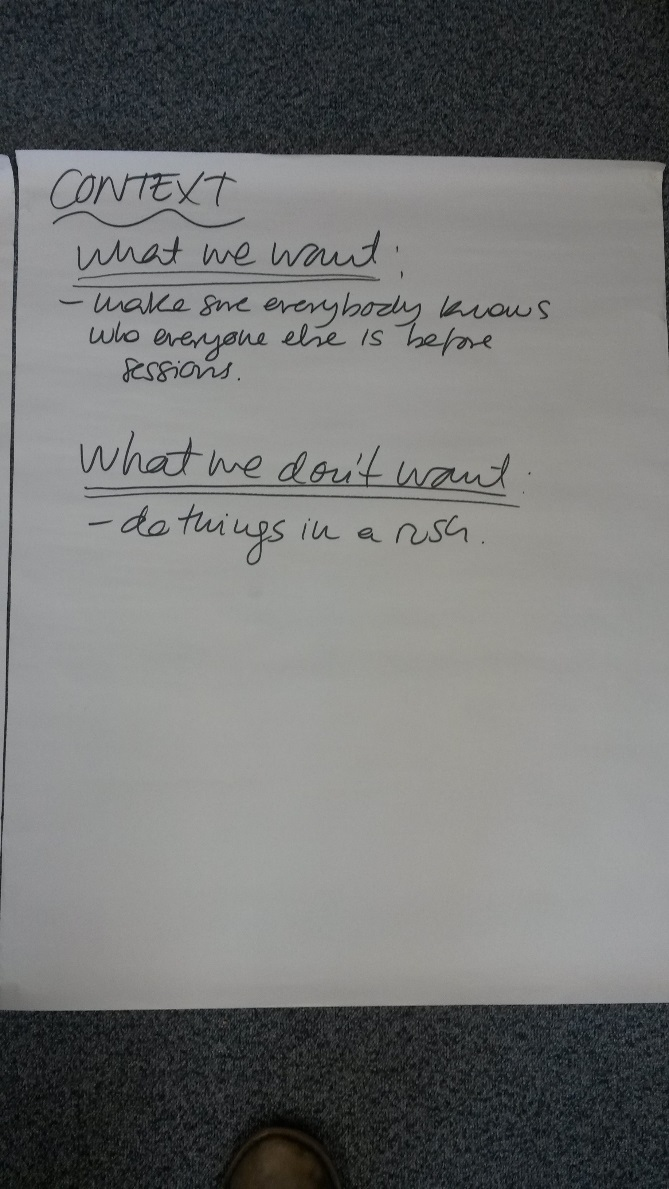 CONTEXT
what we want:
- make sure everybody knows
who everyone else is before
sessions.
What we don't want:
- do things in a rush.